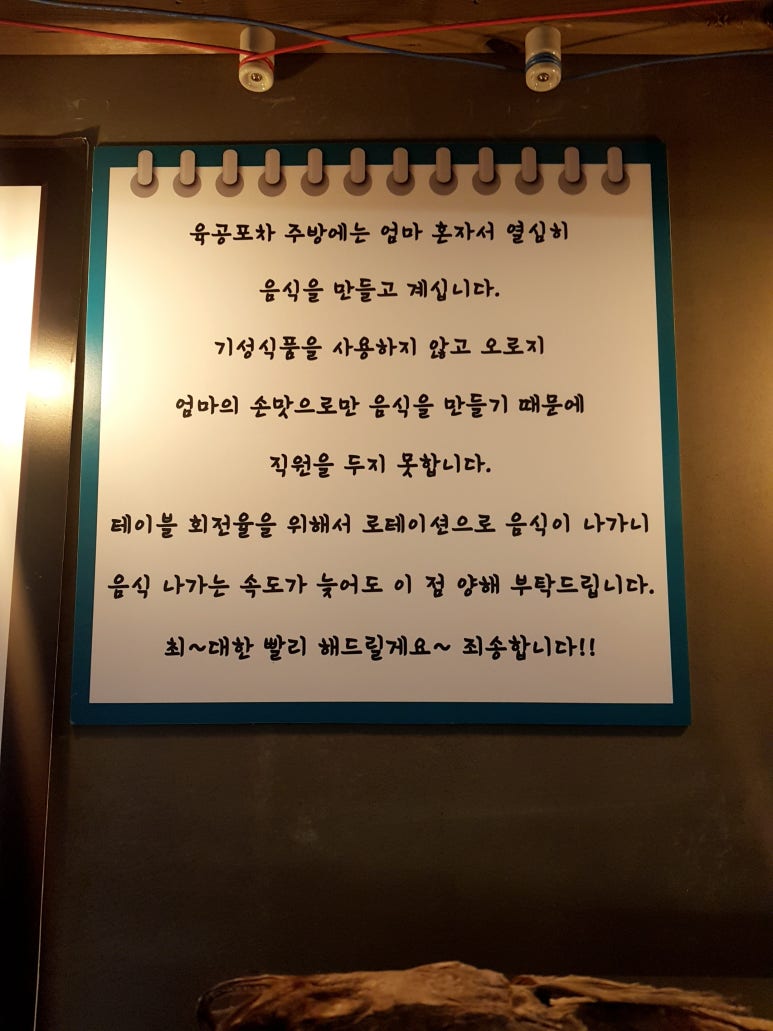 육공포차 주방에는 엄마 혼자서 열심히
음식을 만들고 계십니다.
기성식품을 사용하지 않고 오로지
엄마의 손맛으로만 음식을 만들기 때문에
직원을 두지 못합니다.
테이블 회전율을 위해서 로테이션으로 음식이 나가니
음식 나가는 속도가 늦어도 이 점 양해 부탁드립니다.
최~대한 빨리 해드릴게요~ 죄송합니다!!